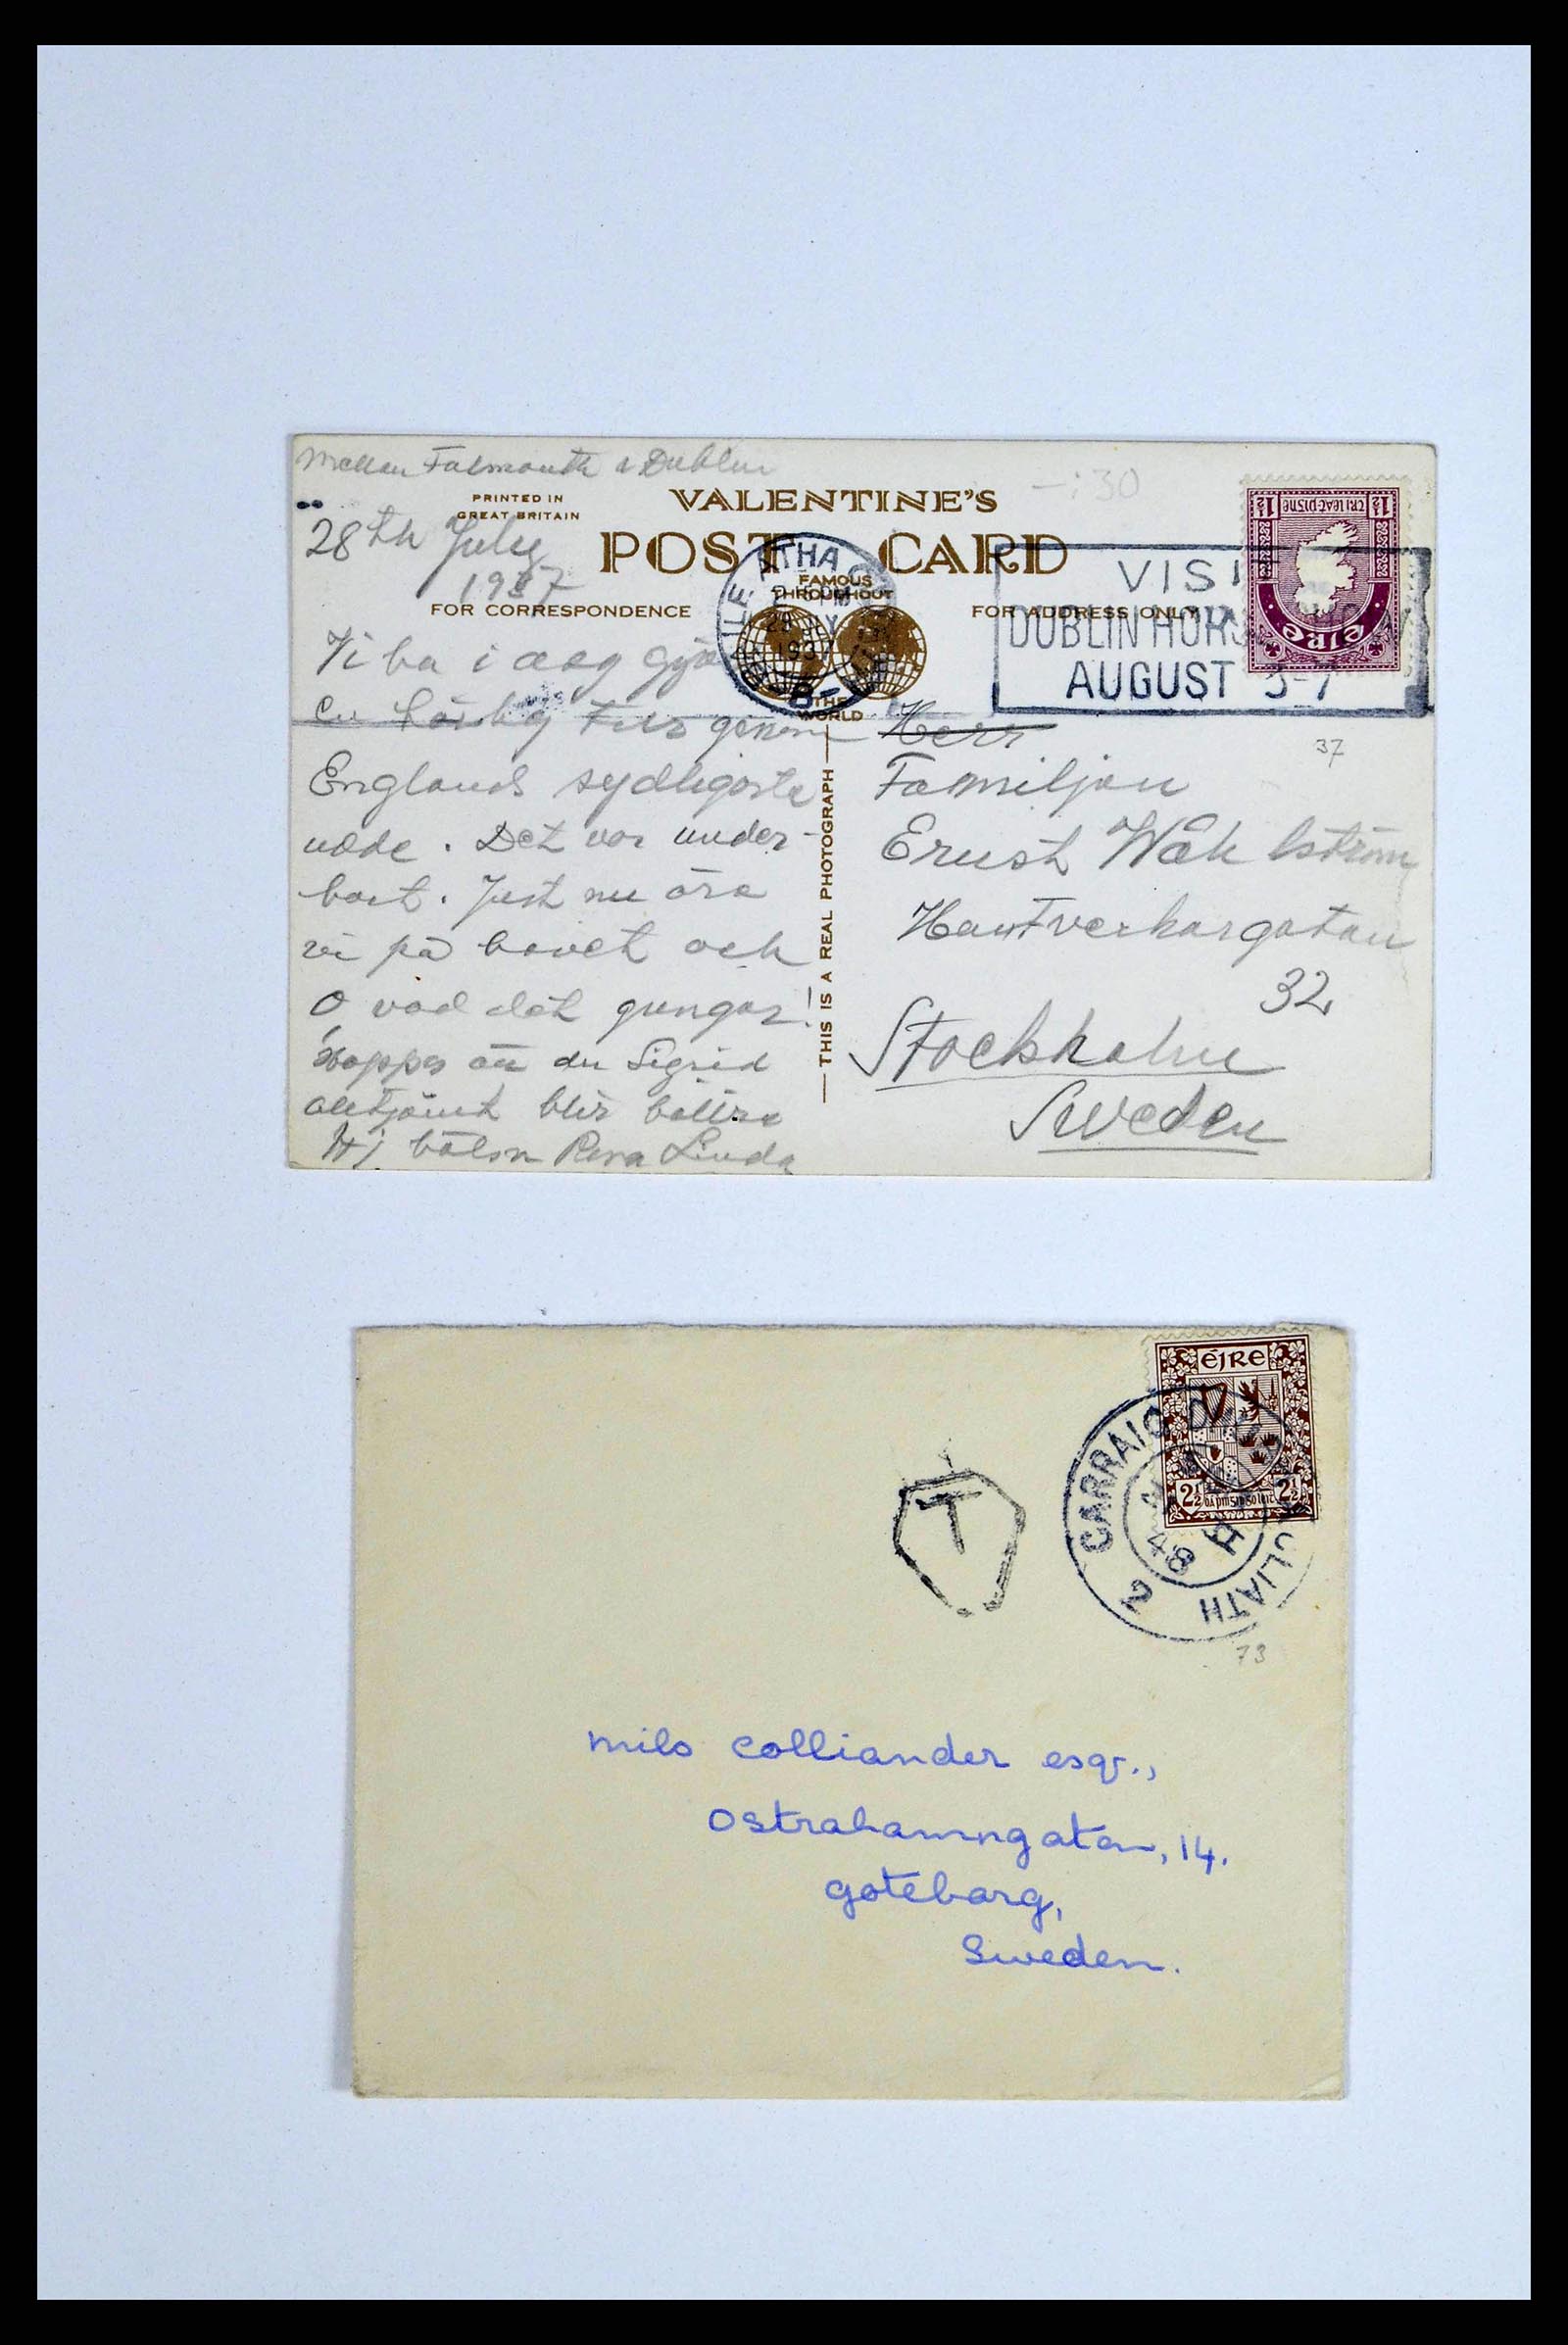 Mellan Falmouth & Dublin
-:30
PRINTED IN
GREAT BRITAIN
VALENTINE'S
28th July
1937
POST CARD
FAMOUS
THROUGHOUT
THE
WORLD
FOR CORRESPONDENCE
FOR ADDRESS ONLY
ATHA
1937
VISIT
DUBLIN HORSE
AUGUST 3-7
1½ CRI LEAT-PISNE 1½
EIRE
Vi ha i dag
en härlig genom
Englands sydligaste
udde. Det var under-
bart. Just nu äro
vi på havet och
O vad det gungar!
Hoppas att du Sigrid
alltjämt blir bättre
Hj hälsn Linda
THIS IS A REAL PHOTOGRAPH
Herr
37
Familjen
Ernst Wahlström
Hantverkargatan
32
Stockholm
Sweden
EIRE
2½ 2½
CARRAIG
LIATH
48
2
T
73
mils colliander esqr.,
Ostrahamngatan, 14.
goteborg,
Sweden.